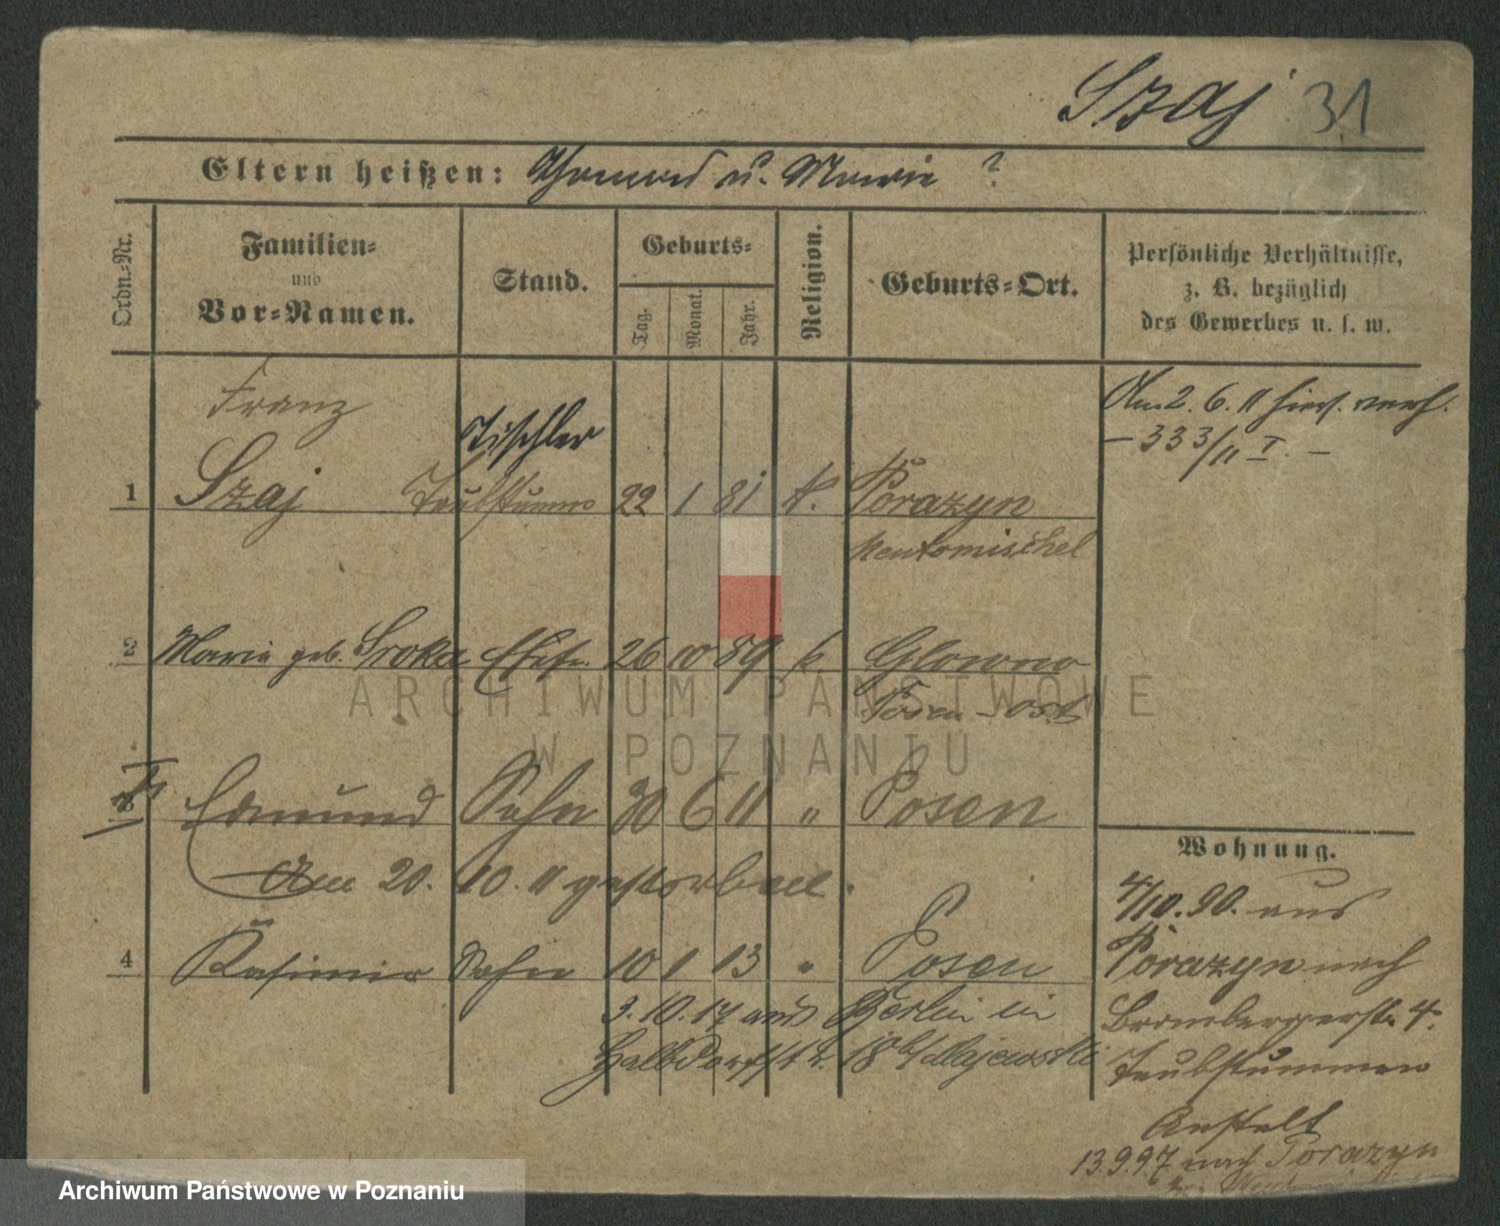 Szaj 31
Eltern heißen: Thomas u. Marie ?
Ordn.-Nr.
Familien-
und
Vor-Namen.
Stand.
Geburts-
Tag.
Monat.
Jahr.
Religion.
Geburts-Ort.
Persönliche Verhältnisse,
z. B. bezüglich
des Gewerbes u. s. w.
Franz
Tischler
Am 2. 6. 11 hier verh.
– 333/11 I. –
1 Szaj Taubstumm 22 1 81 k. Porazyn
Neutomischel
2 Marie geb. Sroka Ehefr. 26 10 89 k. Glowno
Posen-Ost
3 Edmund Sohn 30 6 11 " Posen
Am 20. 10. 11 gestorben.
4 Kasimir Sohn 10 1 13 " Posen
3. 10. 17 aus Berlin in
Halbdorfstr. 18 b/Majewski
Wohnung.
4/10. 90. aus
Porazyn nach
Brombergerstr. 4.
Taubstummen
Anstalt
13.9.97 nach Porazyn
ARCHIWUM PAŃSTWOWE
W POZNANIU
Archiwum Państwowe w Poznaniu